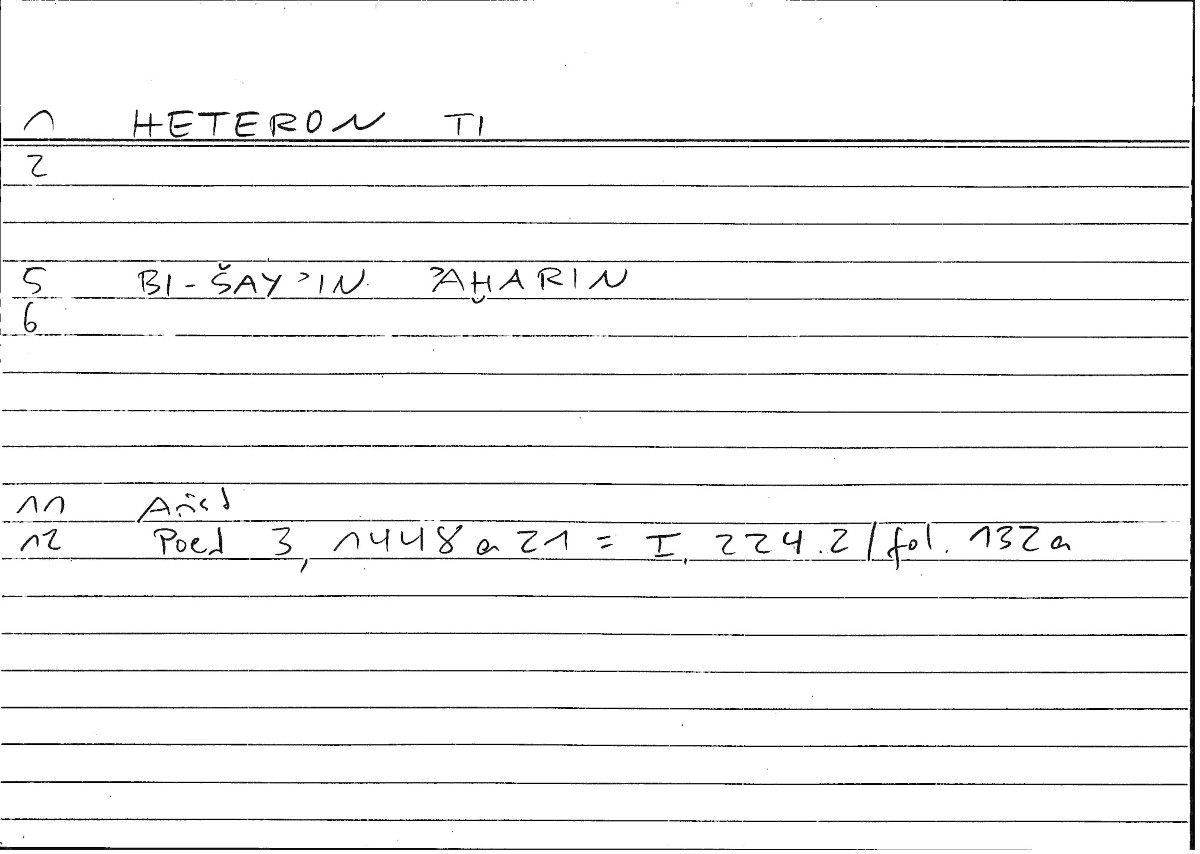 1 HETERON TI
2
5 BI-ŠAYʾIN ʾAḪARIN
6
11
12 Poet 3, 1448a21 = I, 224.2/fol. 132a